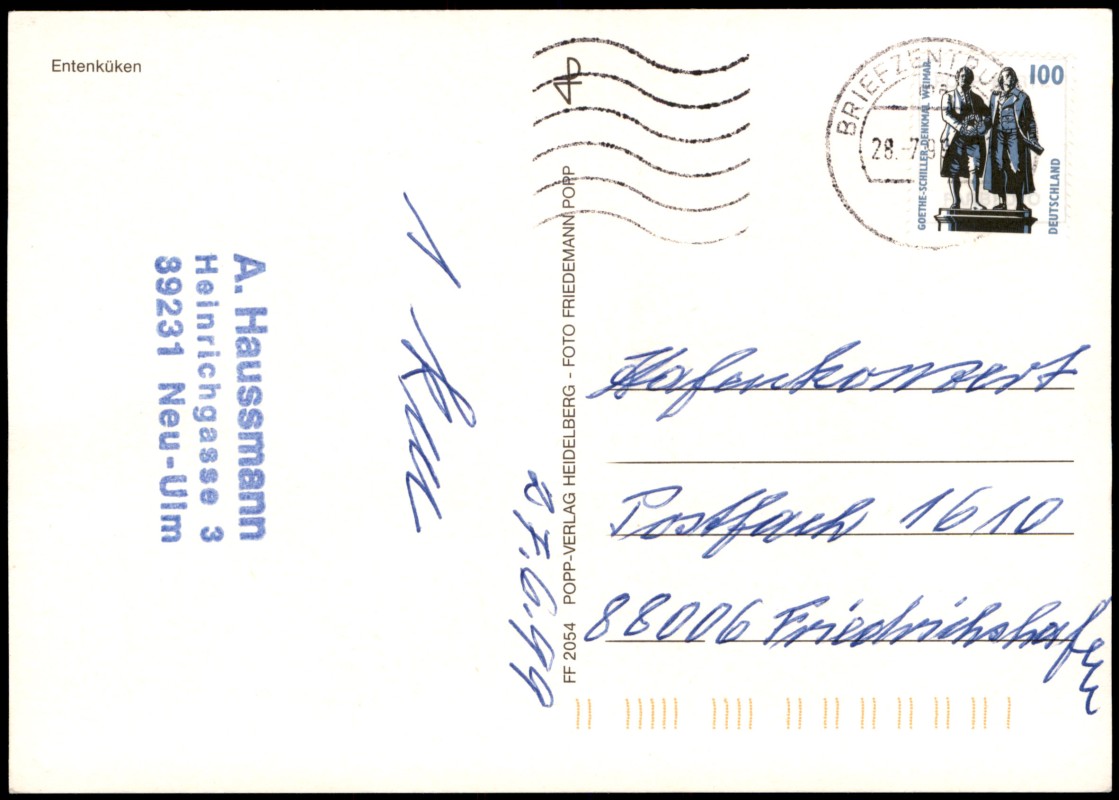 Entenküken
A. Haussmann
Heinrichgasse 3
89231 Neu-Ulm
1
FF 2054 POPP-VERLAG HEIDELBERG - FOTO FRIEDEMANN POPP
BRIEFZENTRU
28.-7.
GOETHE-SCHILLER-DENKMAL WEIMAR
100
DEUTSCHLAND
Hafenkonzert
Postfach 1610
88006 Friedrichshafen